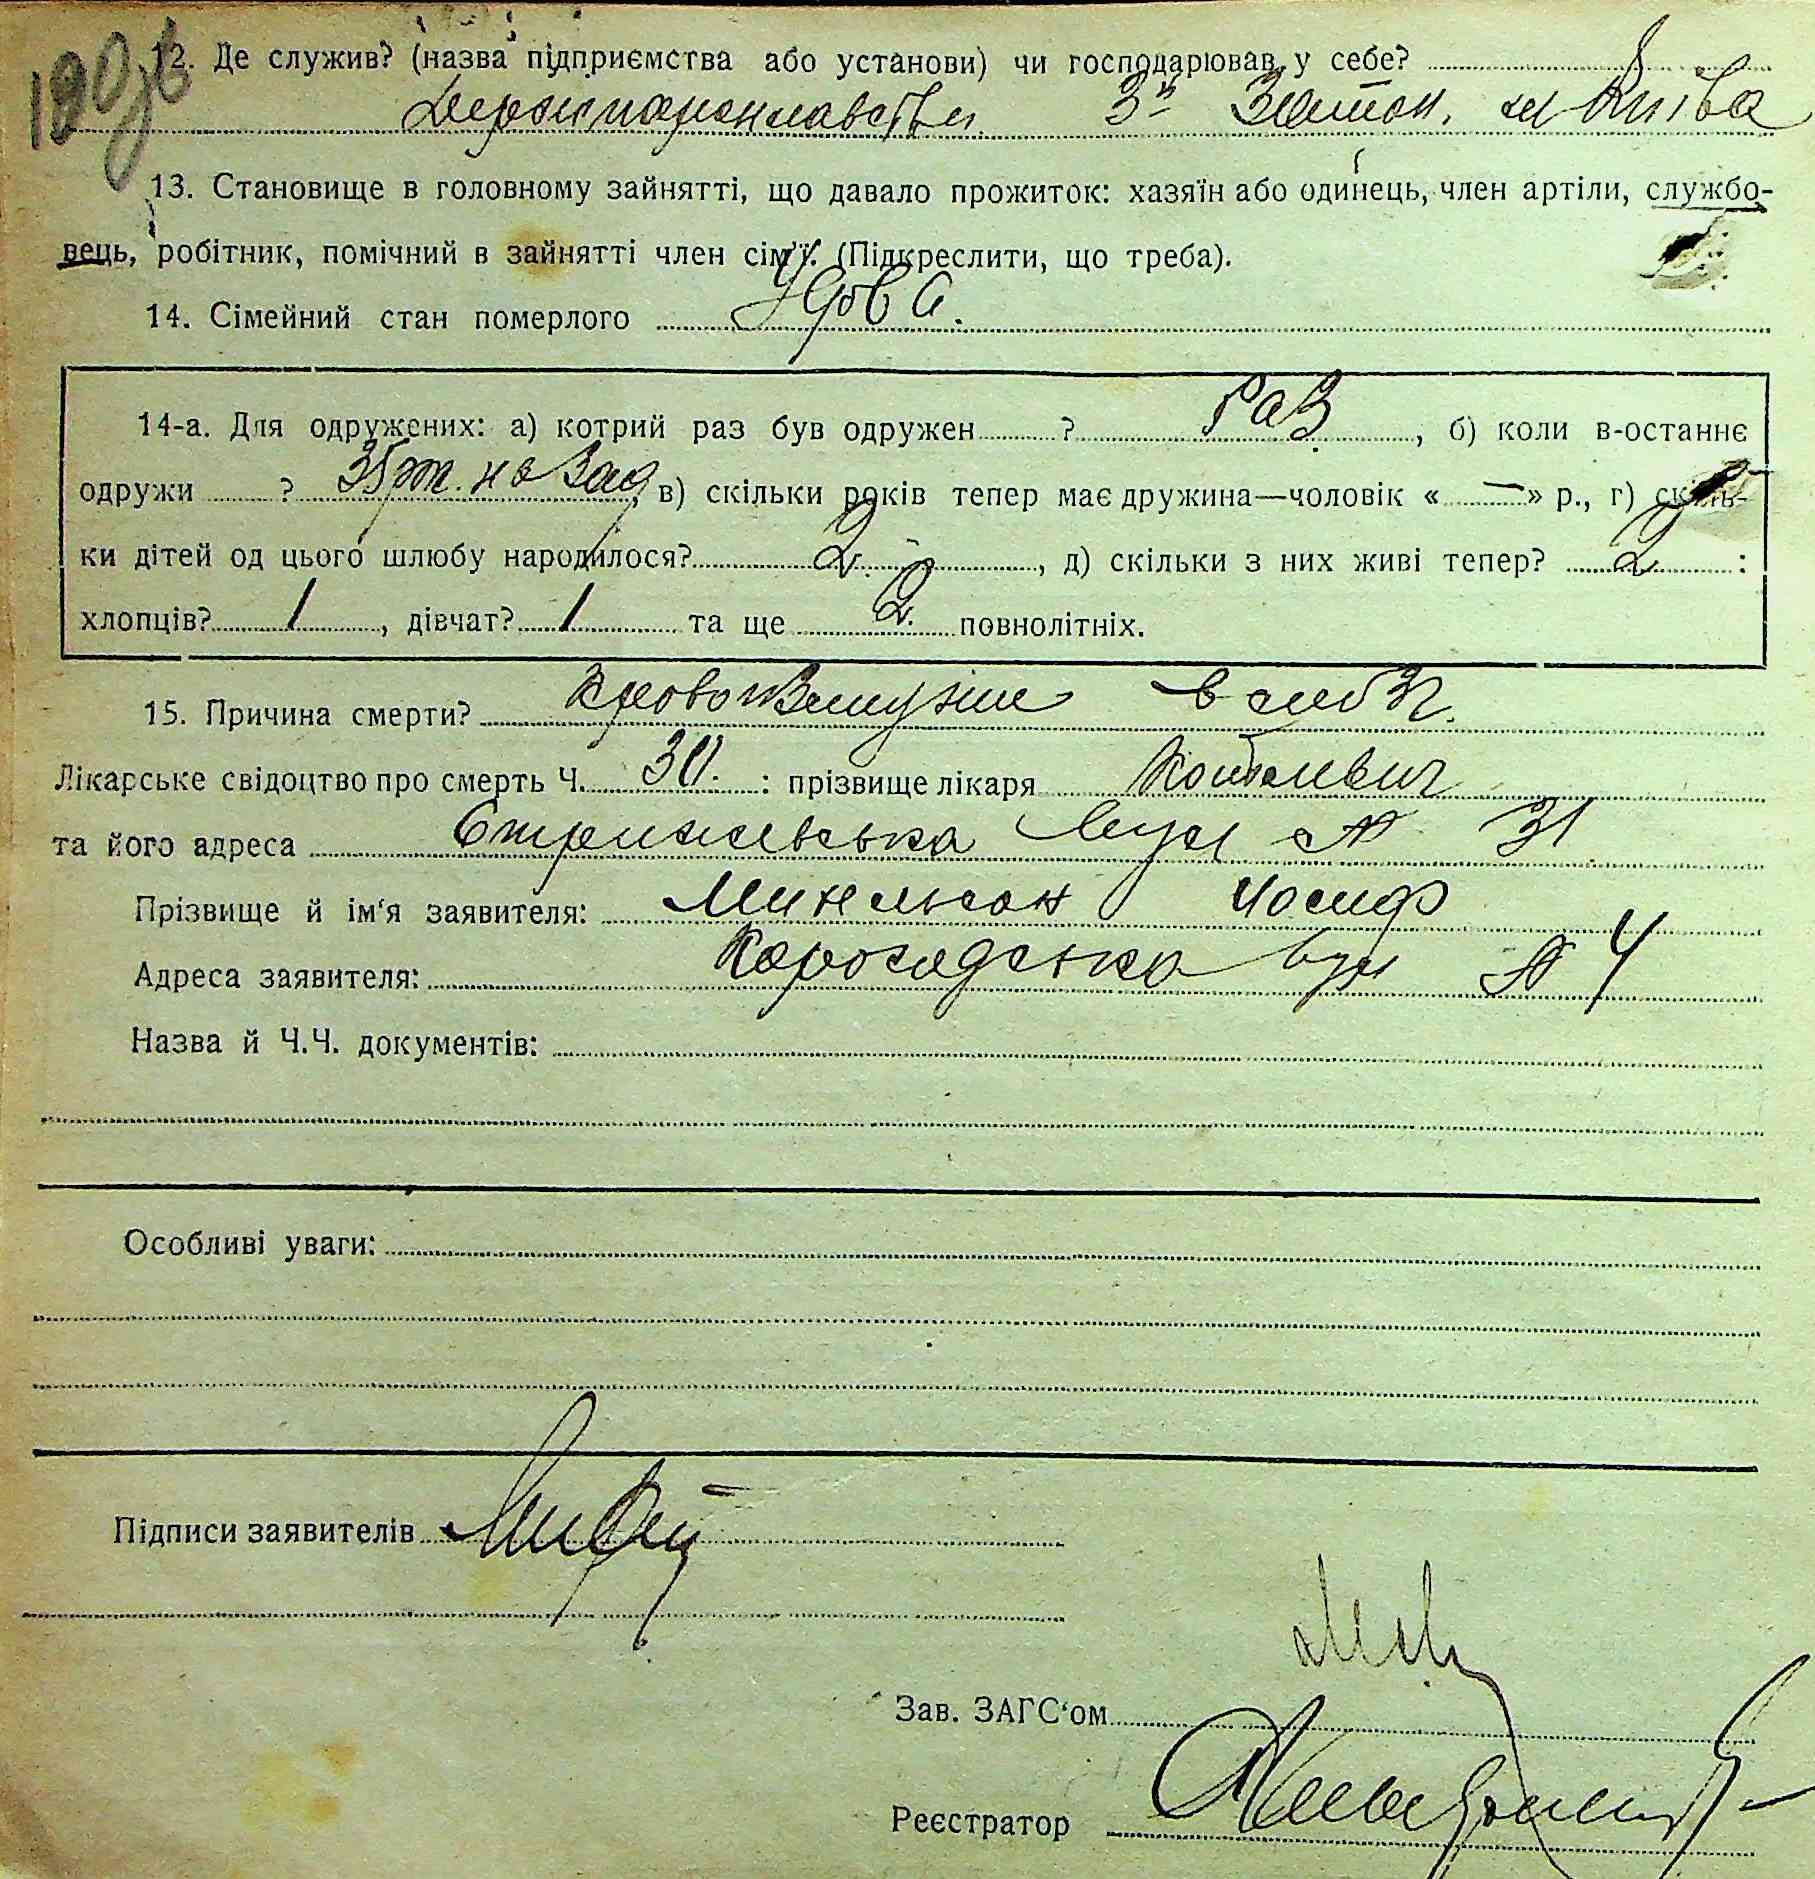 190зв
12. Де служив? (назва підприємства або установи) чи господарював у себе?
Держпароплавства 3й Затон. м Київа
13. Становище в головному зайнятті, що давало прожиток: хазяїн або одинець, член артіли, службо-
вець, робітник, помічний в зайнятті член сім'ї. (Підкреслити, що треба).
14. Сімейний стан померлого Удова.
14-а. Для одружених: а) котрий раз був одружен ? раз, б) коли в-останнє
одружи ? назад, в) скільки років тепер має дружина—чоловік « — » р., г) скіль-
ки дітей од цього шлюбу народилося? 2. , д) скільки з них живі тепер? 2 :
хлопців? 1 , дівчат? 1 та ще 2. повнолітніх.
15. Причина смерти?
Лікарське свідоцтво про смерть Ч. : прізвище лікаря
та його адреса вул № 31
Прізвище й ім'я заявителя: Йосиф
Адреса заявителя: вул № 4
Назва й Ч.Ч. документів:
Особливі уваги:
Підписи заявителів
Зав. ЗАГС'ом
Реєстратор